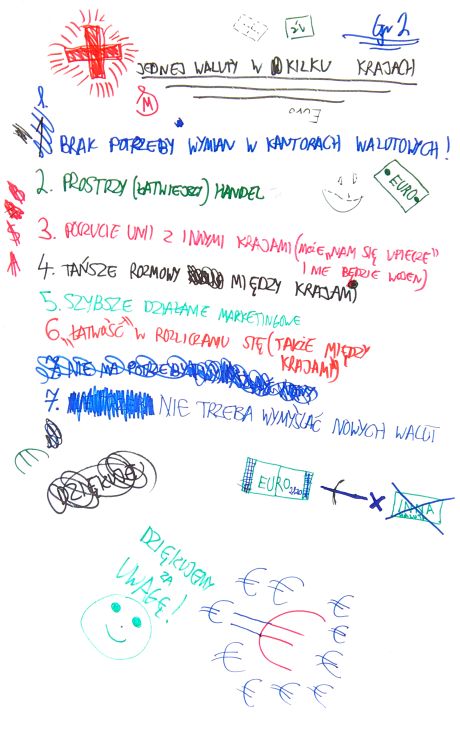 Gr 2
JEDNEJ WALUTY W KILKU KRAJACH
Euro
1. BRAK POTRZEBY WYMIAN W KANTORACH WALUTOWYCH!
2. PROSTRZY (ŁATWIEJSZY) HANDEL
EURO
3. POCZUCIE UNII Z INNYMI KRAJAMI (MOŻE „NAM SIĘ UPIECZE”
I NIE BĘDZIE WOJEN)
4. TAŃSZE ROZMOWY MIĘDZY KRAJAMI
5. SZYBSZE DZIAŁANIE MARKETINGOWE
6. „ŁATWOŚĆ” W ROZLICZANIU SIĘ (TAKŻE MIĘDZY
KRAJAMI)
7. NIE MA POTRZEBY
7. NIE TRZEBA WYMYŚLAĆ NOWYCH WALUT
€
DZIĘKUJEMY
EURO
INNA
WALUTA
DZIĘKUJEMY
ZA
UWAGĘ!
€ € € € € € € € € € € €